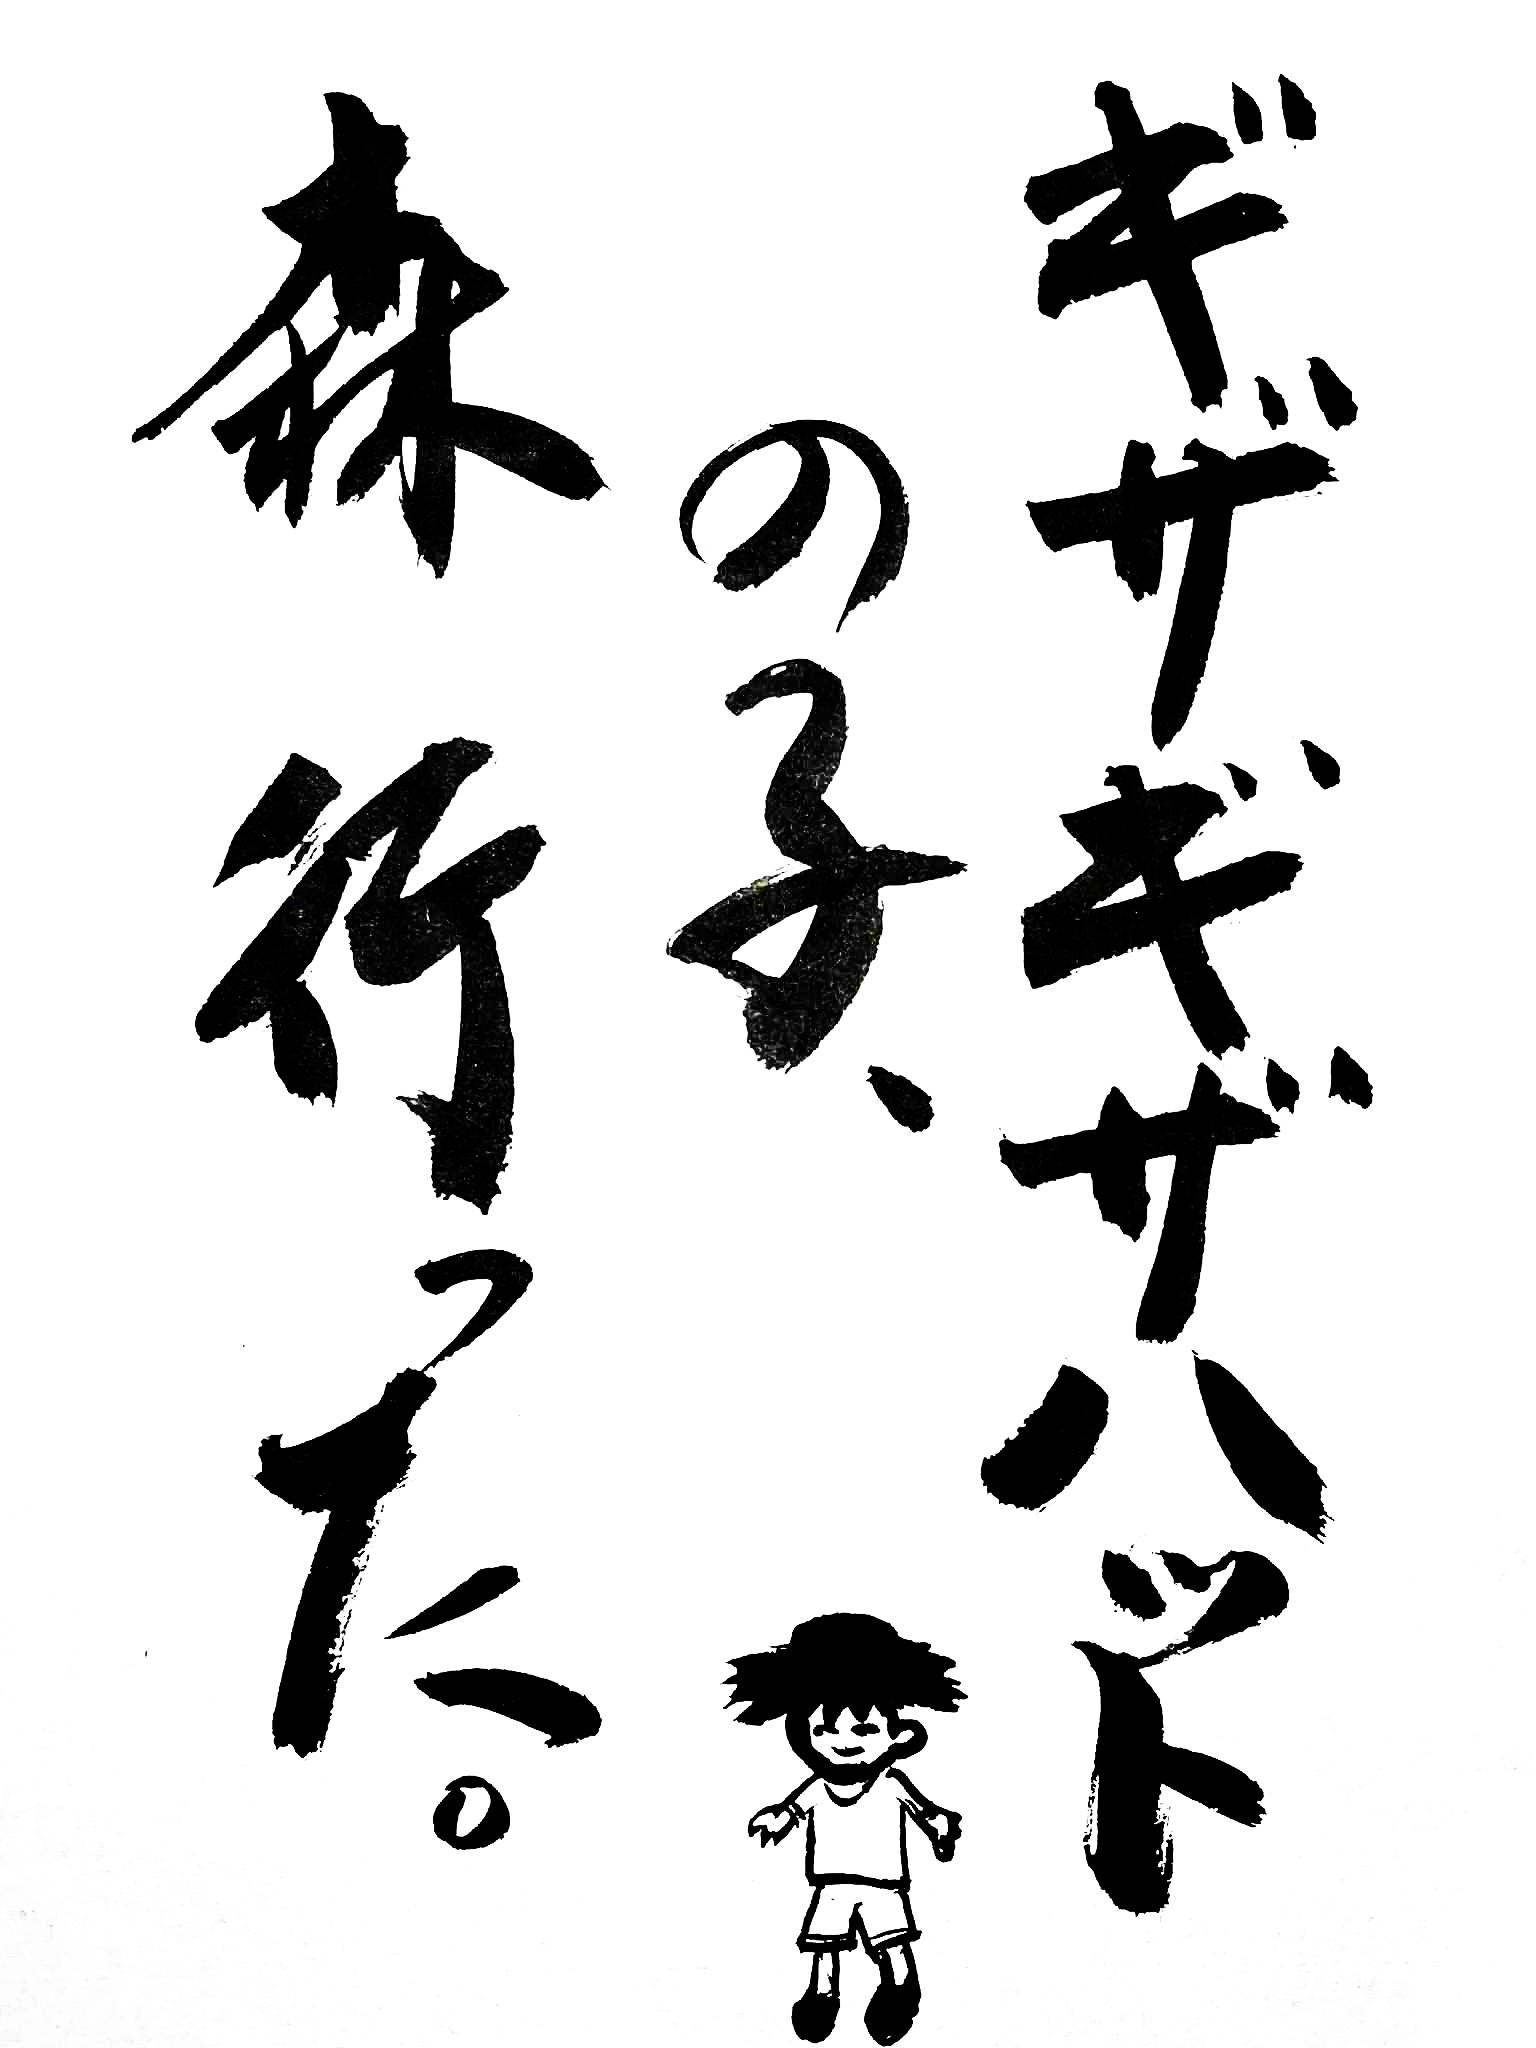 ギザギザハット
の子、
森行った。